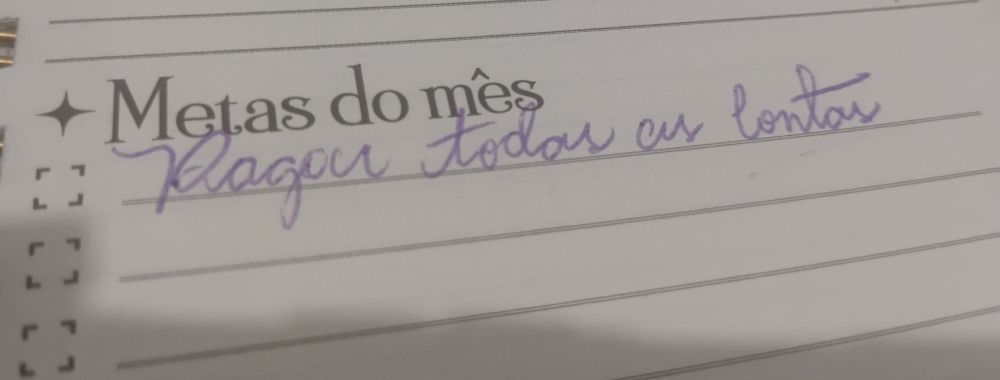 Metas do mês
Pagar todas as contas